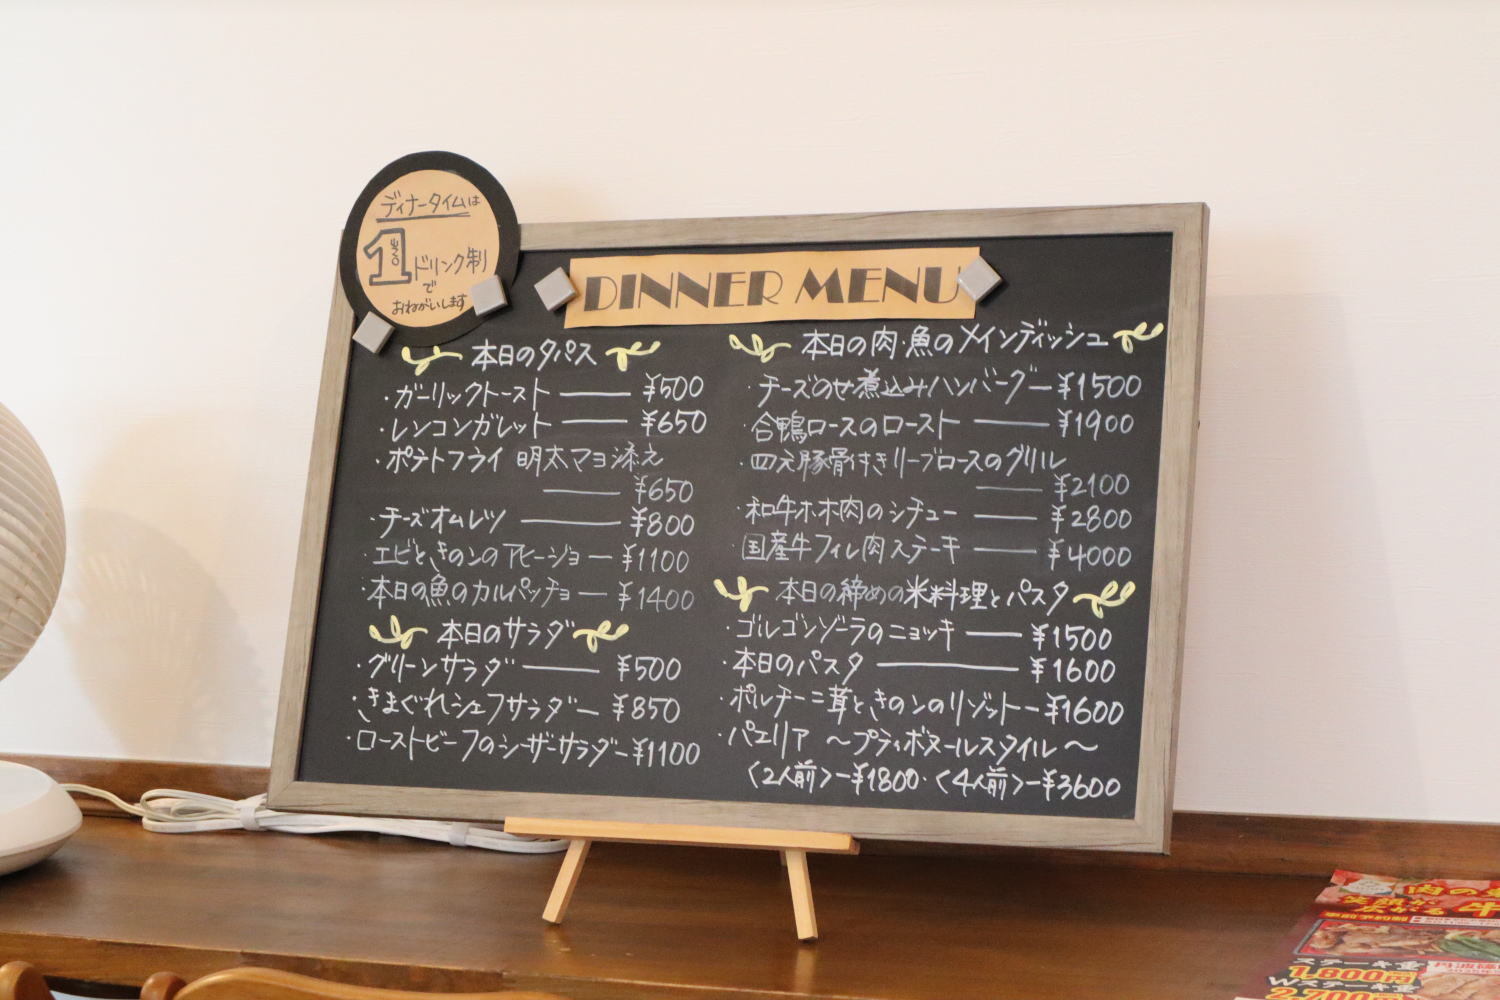 ディナータイムは
1
ドリンク制
で
おねがいします
DINNER MENU
本日のタパス
・ガーリックトースト ¥500
・レンコンガレット ¥650
・ポテトフライ 明太マヨ添え
¥650
・チーズオムレツ ¥800
・エビときのこのアヒージョ ¥1100
・本日の魚のカルパッチョ ¥1400
本日のサラダ
・グリーンサラダ ¥500
・きまぐれシェフサラダ ¥850
・ローストビーフのシーザーサラダ ¥1100
本日の肉・魚のメインディッシュ
・チーズのせ煮込みハンバーグ ¥1500
・合鴨ロースのロースト ¥1900
・四元豚骨付きリーブロースのグリル
¥2100
・和牛ホホ肉のシチュー ¥2800
・国産牛フィレ肉ステーキ ¥4000
本日の締めの米料理とパスタ
・ゴルゴンゾーラのニョッキ ¥1500
・本日のパスタ ¥1600
・ポルチーニ茸ときのこのリゾット ¥1600
・パエリア 〜プティボヌールスタイル〜
〈2人前〉ー¥1800・〈4人前〉ー¥3600
肉の
笑顔が
広がる 牛
ステーキ重
1,800円
Wステーキ重
2,700円